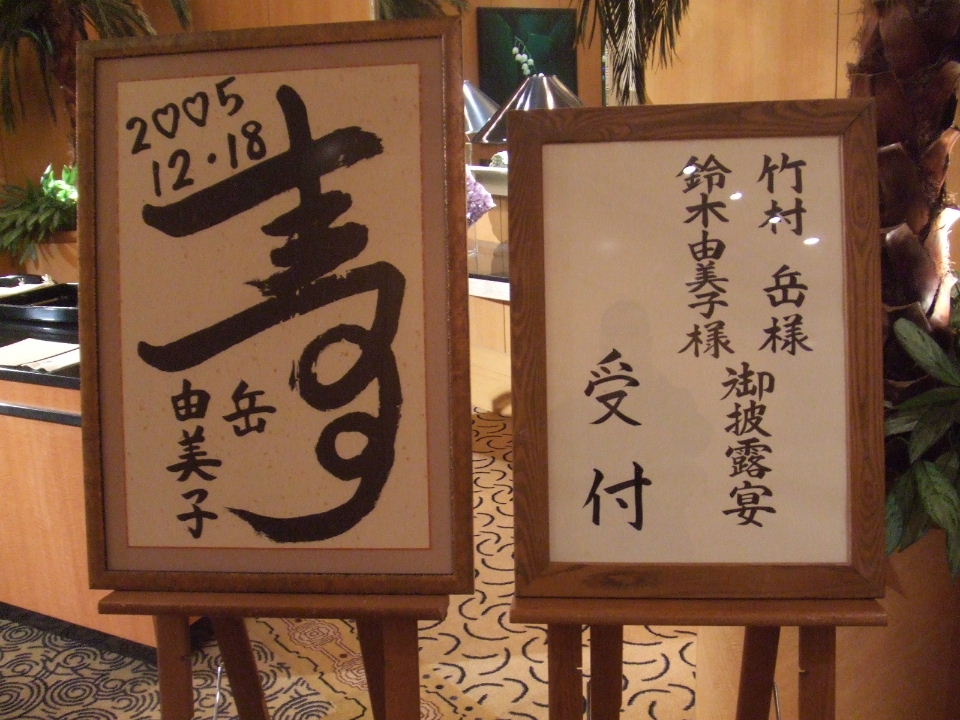 2♡♡5
12・18
寿
岳
由美子
竹村 岳様
鈴木由美子様
御披露宴
受付